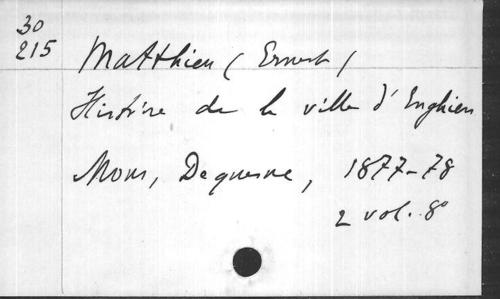 30
215
Matthieu (Ernest)
Histoire de la ville d'Enghien
Mons, Dequesne, 1877-78
2 vol. 8°